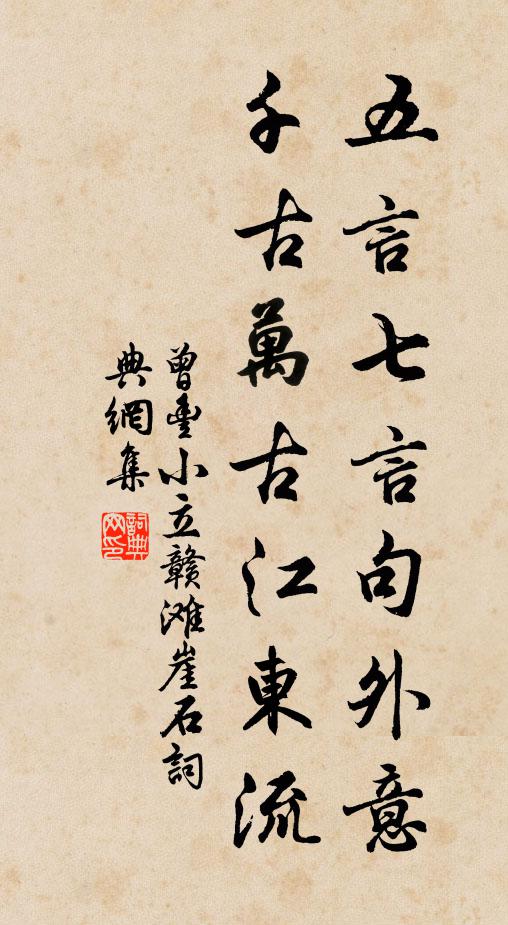 五言七言句外意
千古萬古江東流
曾豐小立赣滩崖石詞
典網集
詞典网印